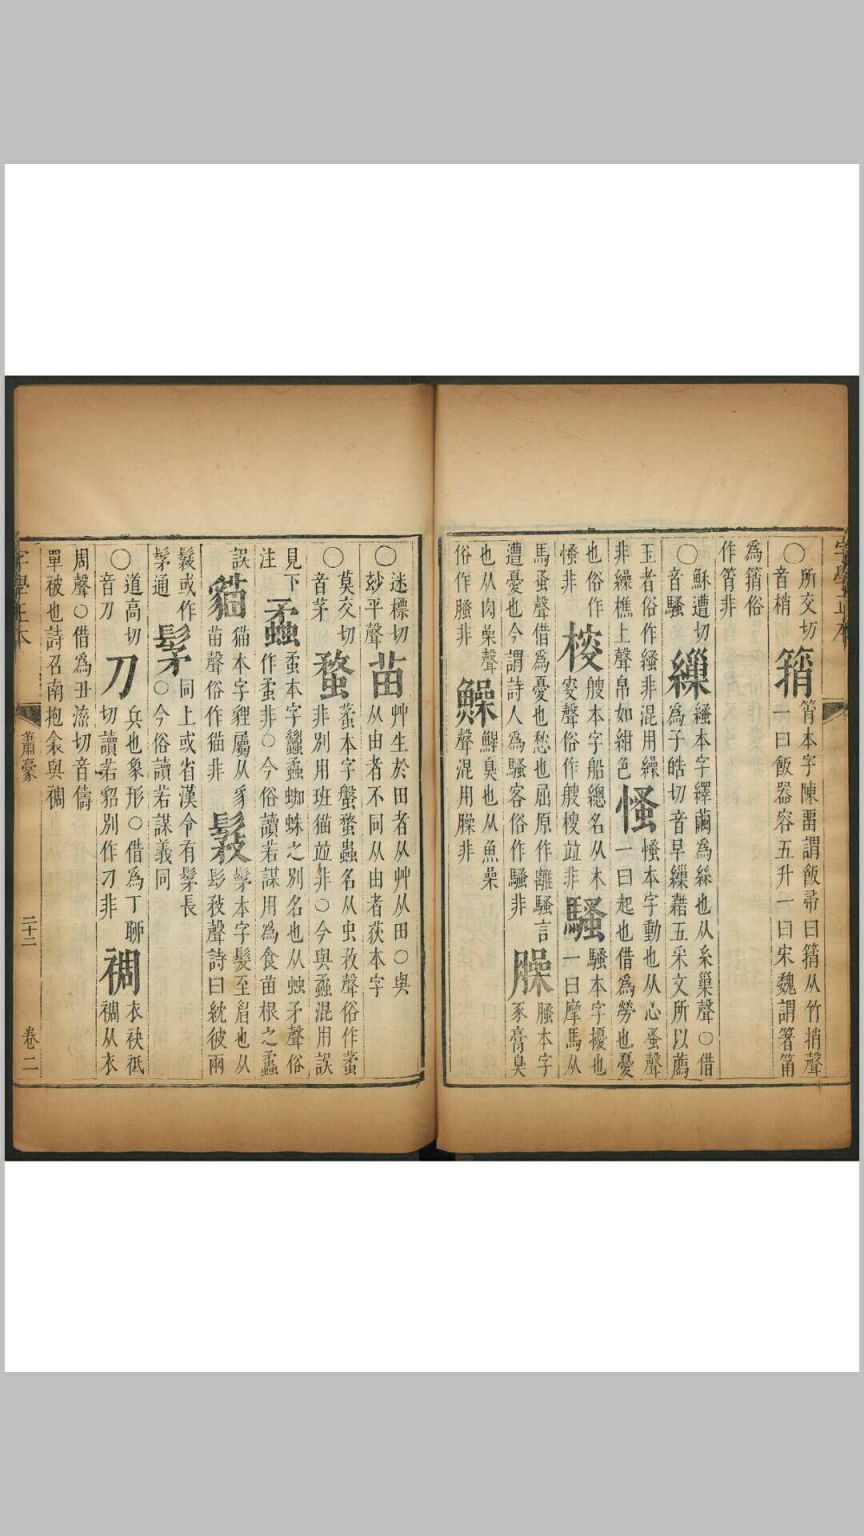 ○所交切音梢 䈾 筲本字陳畱謂飯帚曰䈾从竹捎聲一曰飯器容五升一曰宋魏謂箸筩
爲䈾俗作筲非
○穌遭切音騷 繅 繅本字繹繭爲絲也从糸巢聲○借爲子皓切音早繅藉五采文所以薦
玉者俗作繅非混用繰非繰樵上聲帛如紺色 慅 慅本字動也从心蚤聲一曰起也借爲勞也憂
也俗作慅非 㮴 艘本字船總名从木㚇聲俗作艘艘竝非 騷 騷本字擾也一曰摩馬从
馬蚤聲借爲憂也愁也屈原作離騷言遭憂也今謂詩人爲騷客俗作騷非 臊 臊本字豕膏臭
也从肉喿聲俗作臊非 鱢 鮏臭也从魚喿聲混用臊非
○迷標切玅平聲 苗 艸生於田者从艸从田○與从由者不同从由者荻本字
○莫交切音茅 蝥 蟊本字螌蝥蟲名从虫敄聲俗作蟊非別用班猫竝非○今與蟊混用誤
見下注 蟊 蝥本字鼅蟊蜘蛛之別名也从䖵矛聲俗作蝥非○今俗讀若謀用爲食苗根之蟊
誤 貓 猫本字貍屬从豸苗聲俗作猫非 髳 髳本字髮至眉也从髟敄聲詩曰紞彼兩
髳或作髳通 髳 同上或省漢令有髳長○今俗讀若謀義同
○道高切音刀 刀 兵也象形○借爲丁聊切讀若貂別作刁非 裯 衣袂衹裯从衣
周聲○借爲丑㳅切音儔單被也詩召南抱衾與裯
字學正本
蕭豪
二十二
卷二